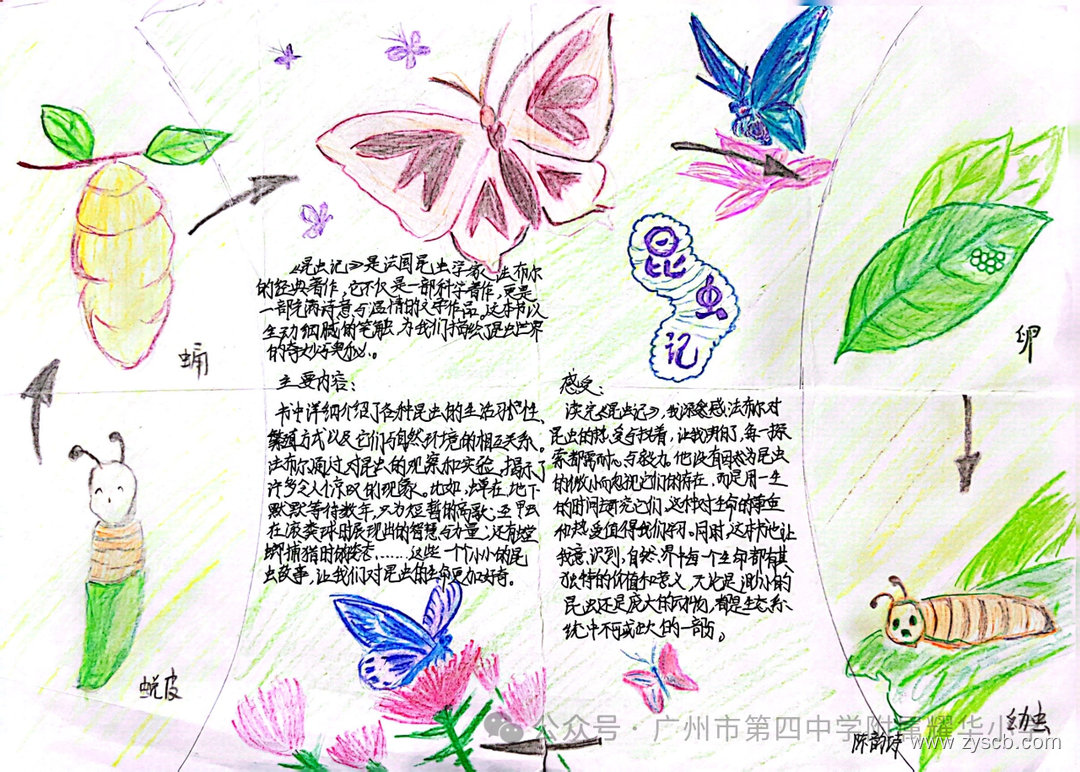 《昆虫记》是法国昆虫学家法布尔
的经典著作,它不仅是一部科学著作,更是
一部充满诗意与温情的文学作品。这本书以
生动细腻的笔触,为我们描绘了昆虫世界
的奇妙与奥秘。
昆
虫
记
蛹
卵
主要内容:
书中详细介绍了各种昆虫的生活习性、
繁殖方式以及它们与自然环境的相互关系。
法布尔通过对昆虫的观察和实验,揭示了
许多令人惊叹的现象。比如,蝉在地下
默默等待数年,只为短暂的高歌;
在滚粪球时展现出的智慧与力量;还有螳
螂捕猎时的姿态……这些一个个小小的昆
虫故事,让我们对昆虫的生命更加好奇。
感受:
读完《昆虫记》,我深感法布尔对
昆虫的热爱与执着,让我明白了,每一探
索都需耐心与毅力。他没有因为昆虫
的微小而忽视它们的存在,而是用一生
的时间去研究它们,这种对生命的尊重
和热爱值得我们学习。同时,这本书也让
我意识到,自然界中每一个生命都有其
独特的价值和意义,无论是渺小的
昆虫还是庞大的动物,都是生态系
统中不可或缺的一部分。
蜕皮
幼虫
陈韵
公众号·广州市第四中学附属耀华小学
www.zyscb.com